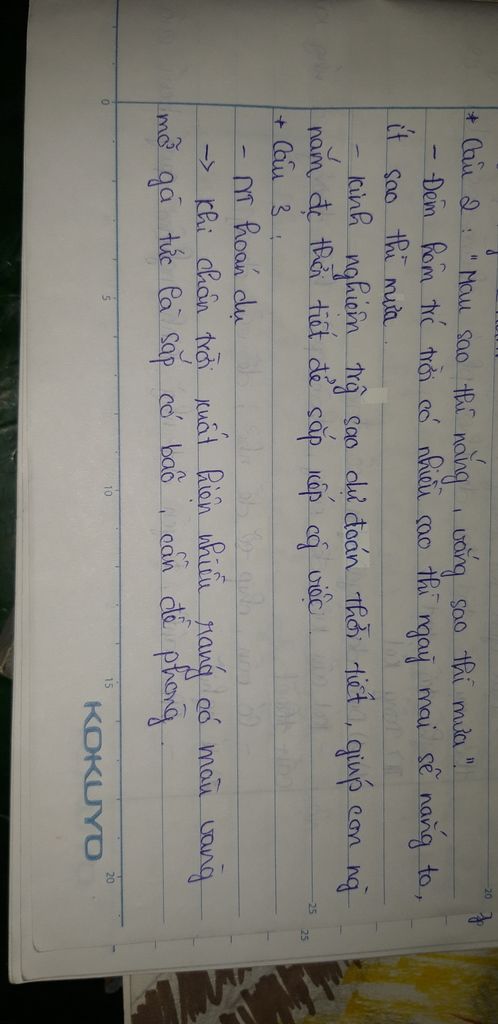 * Câu 2: "Mau sao thì nắng, vắng sao thì mưa".
- Đêm hôm trc trời có nhiều sao thì ngày mai sẽ nắng to,
ít sao thì mưa.
- Kinh nghiệm trg sao dự đoán thời tiết, giúp con ng
nắm đc thời tiết để sắp xếp cg việc.
+ Câu 3:
- NT hoán dụ
-> Khi chân trời xuất hiện nhiều ráng có màu vàng
mỡ gà tức là sắp có bão, cần đề phòng.
KOKUYO
0 5 10 15 20
20
25
25